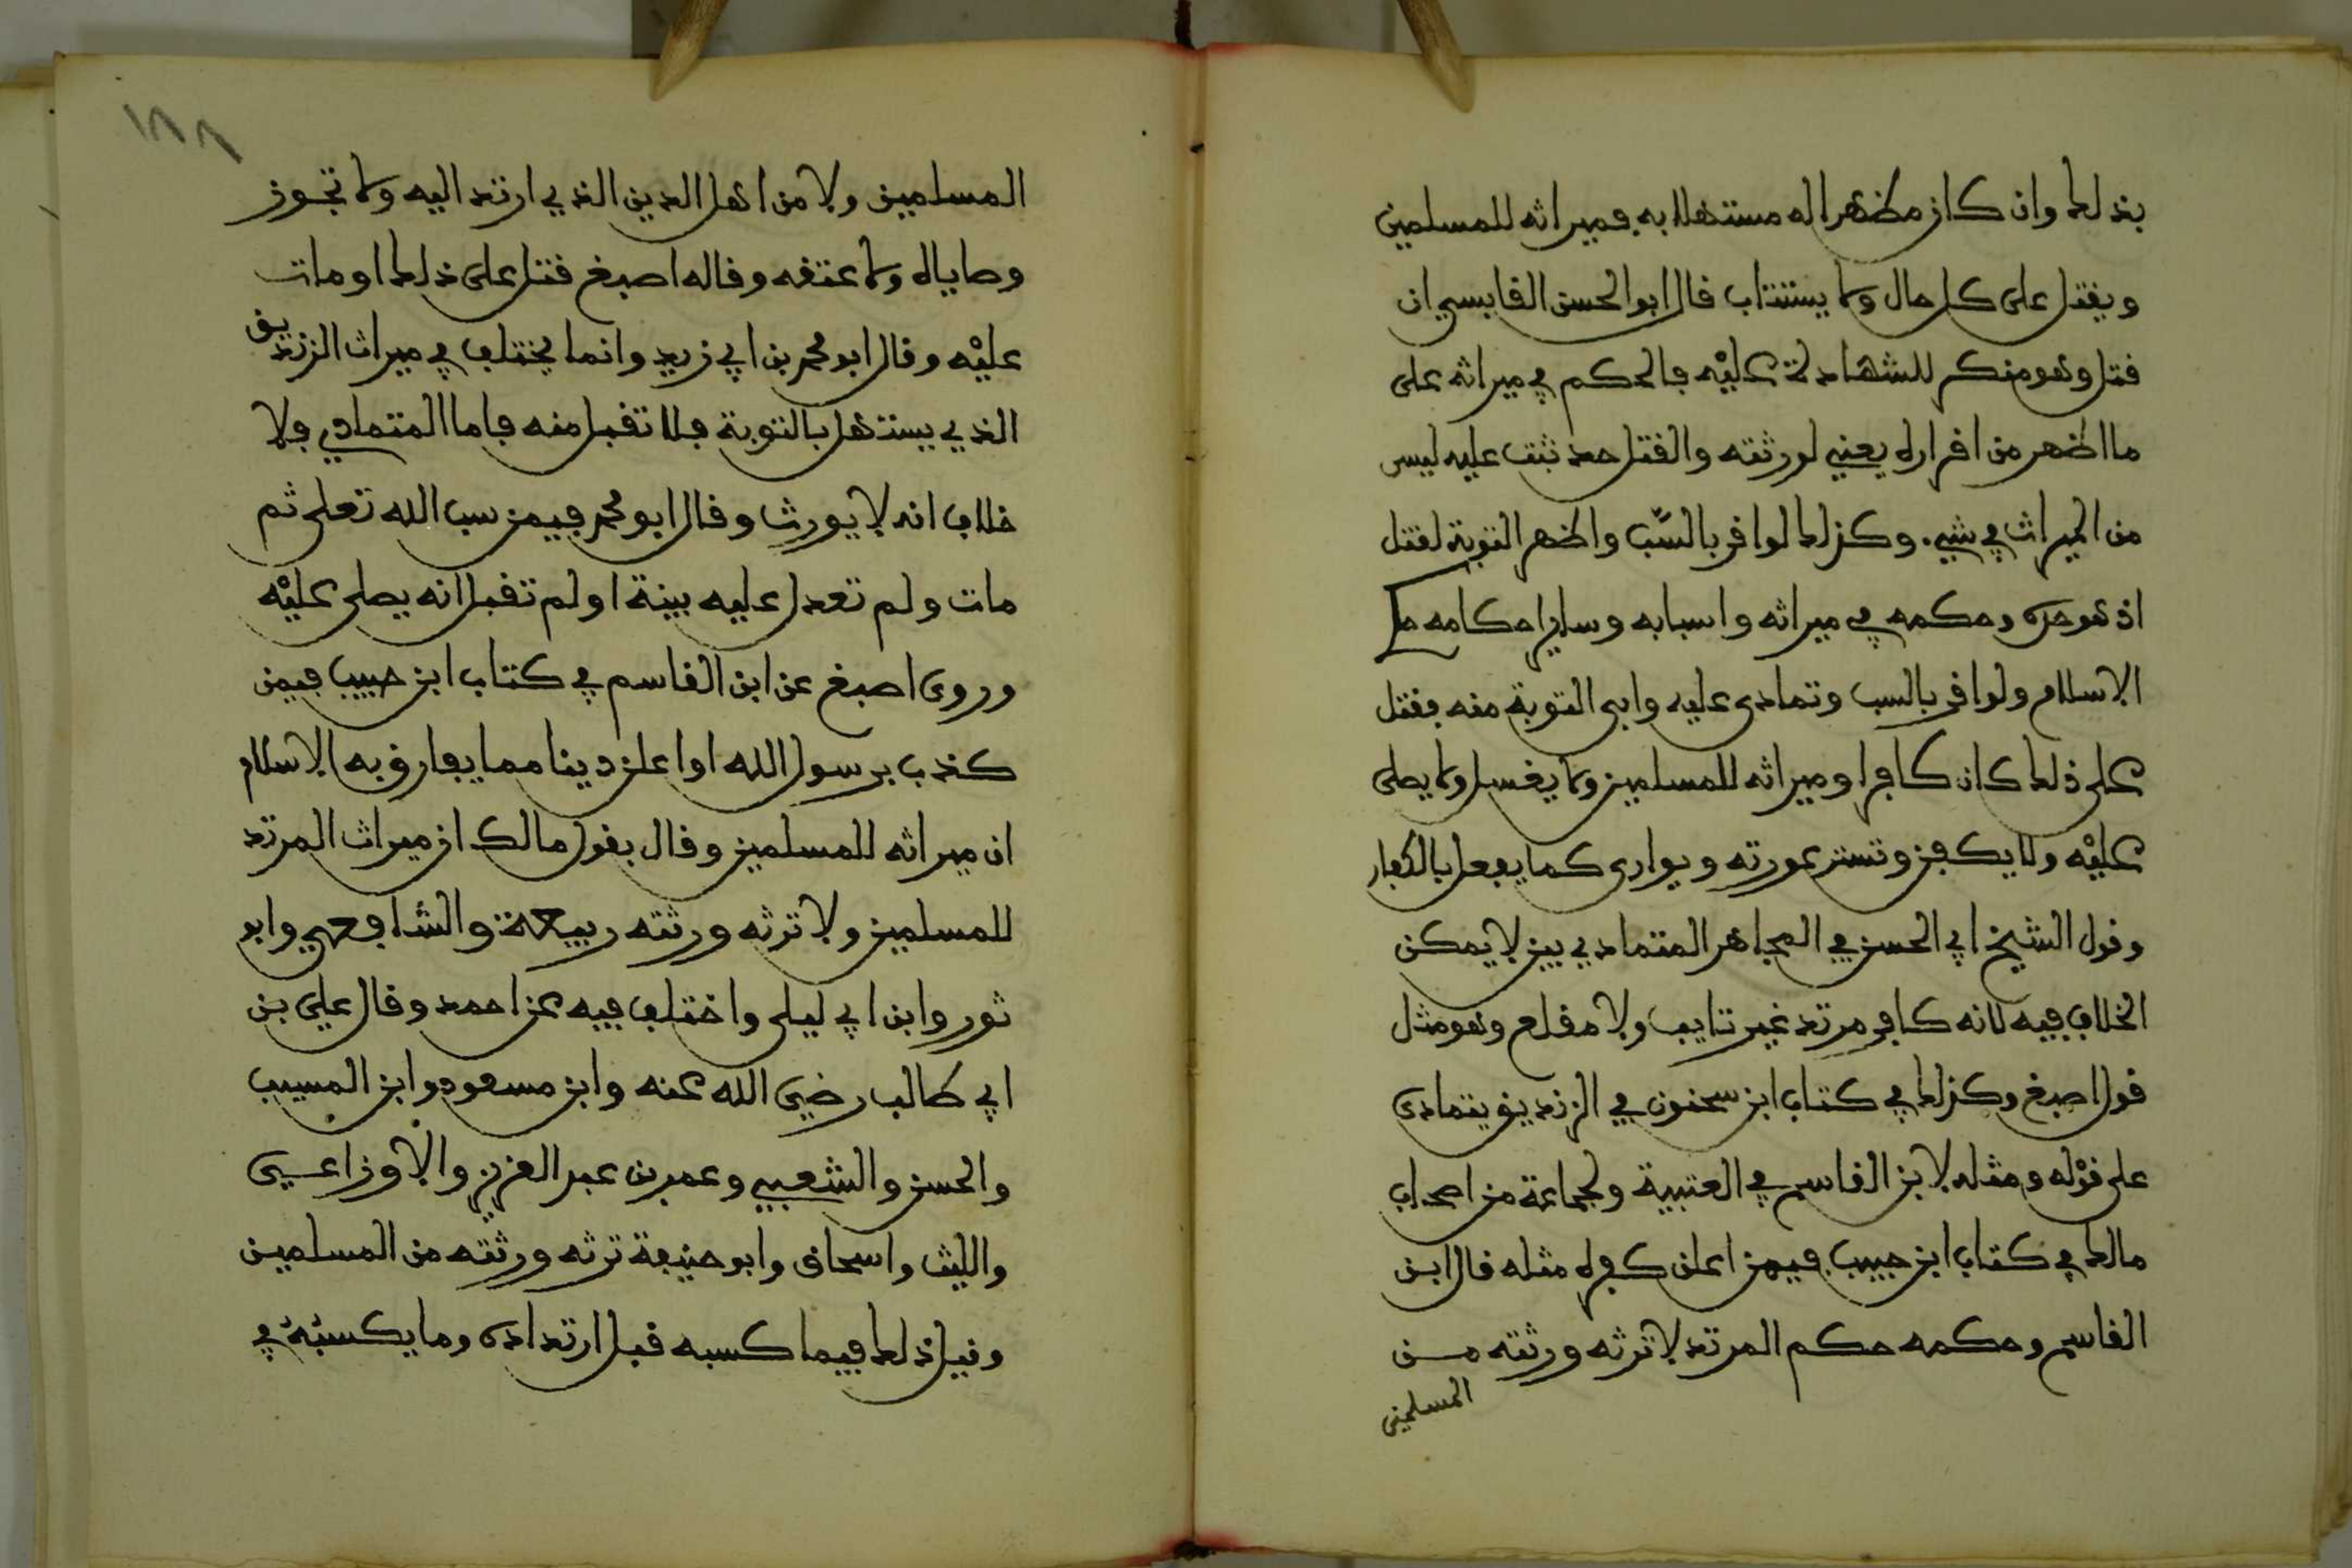 بذلك وان كان مظهرا له مستهلا به فميراثه للمسلمين
ويقتل على كل حال ولا يستتاب قال ابو الحسن القابسي ان
قتل وهو منكر للشهادة عليه فالحكم في ميراثه على
ما اظهر من اقراره يعني لورثته والقتل حد ثبت عليه ليس
من الميراث في شيء وكذلك لو اقر بالسب واظهر التوبة لقتل
اذ هو حده وحكمه في ميراثه واسبابه وساير احكامه حكم
الاسلام ولو اقر بالسب وتمادى عليه وابى التوبة منه فقتل
على ذلك كان كافرا وميراثه للمسلمين ولا يغسل ولا يصلى
عليه ولا يكفن وتستر عورته ويوارى كما يفعل بالكفار
وقول الشيخ ابي الحسن في المجاهر المتمادي بين لا يمكن
الخلاف فيه لانه كافر مرتد غير تايب ولا مقلع وهو مثل
قول اصبغ وكذلك في كتاب ابن سحنون في الزنديق يتمادى
على قوله ومثله لابن القاسم في العتبية ولجماعة من اصحاب
مالك في كتاب ابن حبيب فيمن اعلن كفره مثله قال ابن
القاسم وحكمه حكم المرتد لا ترثه ورثته مــن
المسلمين
١٨٨
المسلمين ولا من اهل الدين الذي ارتد اليه ولا تجوز
وصاياه ولا عتقه وقاله اصبغ قتل على ذلك او مات
عليه وقال ابو محمد بن ابي زيد وانما يختلف في ميراث الزنديق
الذي يستهل بالتوبة فلا تقبل منه فاما المتمادي فلا
خلاف انه لا يورث وقال ابو محمد فيمن سب الله تعلى ثم
مات ولم تعدل عليه بينة او لم تقبل انه يصلى عليه
وروى اصبغ عن ابن القاسم في كتاب ابن حبيب فيمن
كذب برسول الله او اعلن دينا مما يفارق به الاسلام
ان ميراثه للمسلمين وقال بقول مالك ان ميراث المرتد
للمسلمين ولا ترثه ورثته ربيعة والشافعي وابو
ثور وابن ابي ليلى واختلف فيه عن احمد وقال علي بن
ابي طالب رضي الله عنه وابن مسعود وابن المسيب
والحسن والشعبي وعمر بن عبد العزيز والاوزاعي
والليث واسحاق وابو حنيفة ترثه ورثته من المسلمين
وقيل ذلك فيما كسبه قبل ارتداده وما يكسبه في